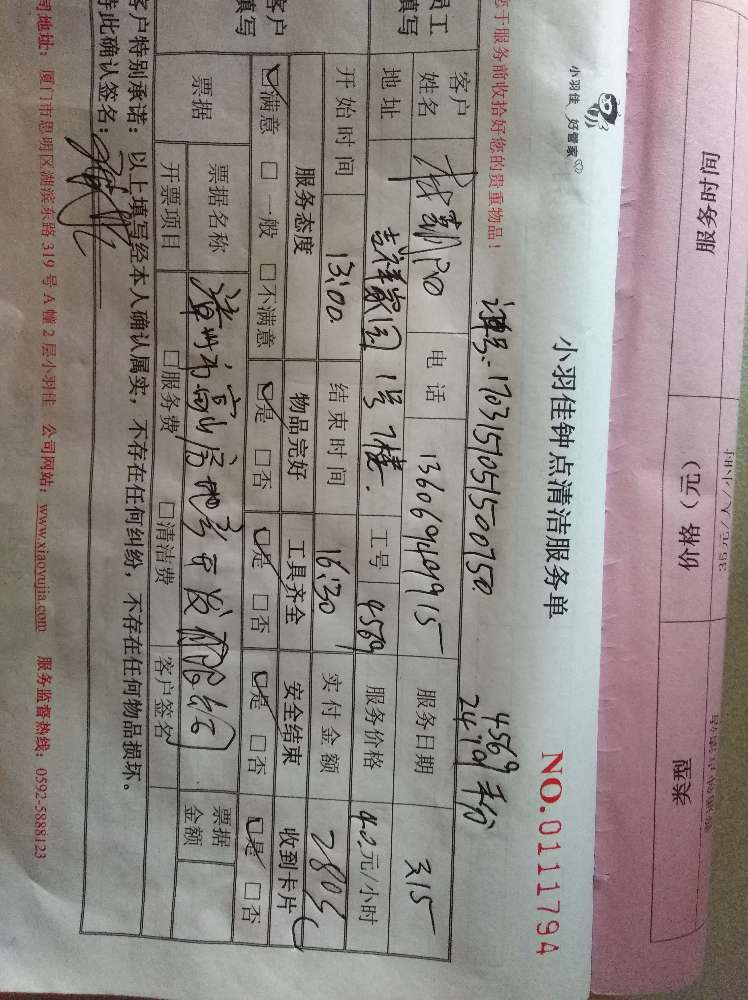 服务时间
价格（元）
类型
小羽佳 好管家
小羽佳钟点清洁服务单
NO.0111794
订单号:170315105150075O
4569
于服务前收拾好您的贵重物品！
员工
填写
客户
姓名
电话
13606944915
服务日期
3.15
地址
吉祥家园1号7楼.
工号
4569
服务价格
40.元/小时
开始时间
13:00
结束时间
16:30
实付金额
280元
客户
填写
服务态度
物品完好
工具齐全
安全结束
收到卡片
☑满意 □一般 □不满意
☑是 □否
☑是 □否
☑是 □否
☑是 □否
票据
票据名称
票据
金额
开票项目
□服务费
□清洁费
客户签名
客户特别承诺：以上填写经本人确认属实，不存在任何纠纷，不存在任何物品损坏。
特此确认签名：
司地址：厦门市思明区湖滨东路319号A幢2层小羽佳 公司网站：www.xiaoyujia.com 服务监督热线：0592-5888123